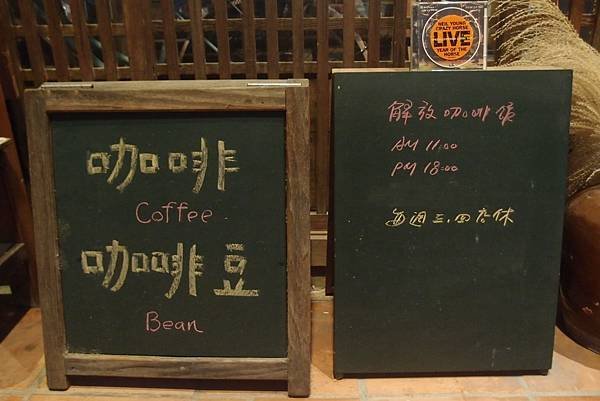 咖啡
Coffee
咖啡豆
Bean
NEIL YOUNG
CRAZY HORSE
LIVE
YEAR OF THE
HORSE
解放咖啡館
AM 11:00
PM 18:00
每週三.四店休